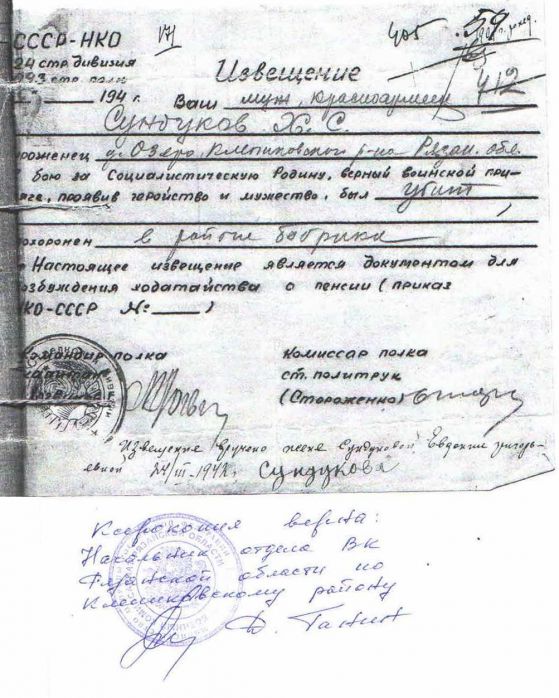 СССР-НКО 171 405 59
24 стр. дивизия
293 стр. полк Извещение 412
194 г. Ваш муж, красноармеец
Сундуков Х. С.
роженец д. Озеро, Клепиковского р-на Рязан. обл.
бою за Социалистическую Родину, верный воинской при-
яге, проявив геройство и мужество, был убит
охоронен в районе бобрика
Настоящее извещение является документом для
озбуждения ходатайства о пенсии (приказ
НКО-СССР №: )
Командир полка Комиссар полка
капитан ст. политрук
(Стороженко)
Извещение вручено жене Сундуковой Евдокии Григорь-
евной 24/III-1942г. Сундукова
Ксерокопия верна:
Начальник отдела ВК
Рязанской области по
Клепиковскому району
Д. Ганин